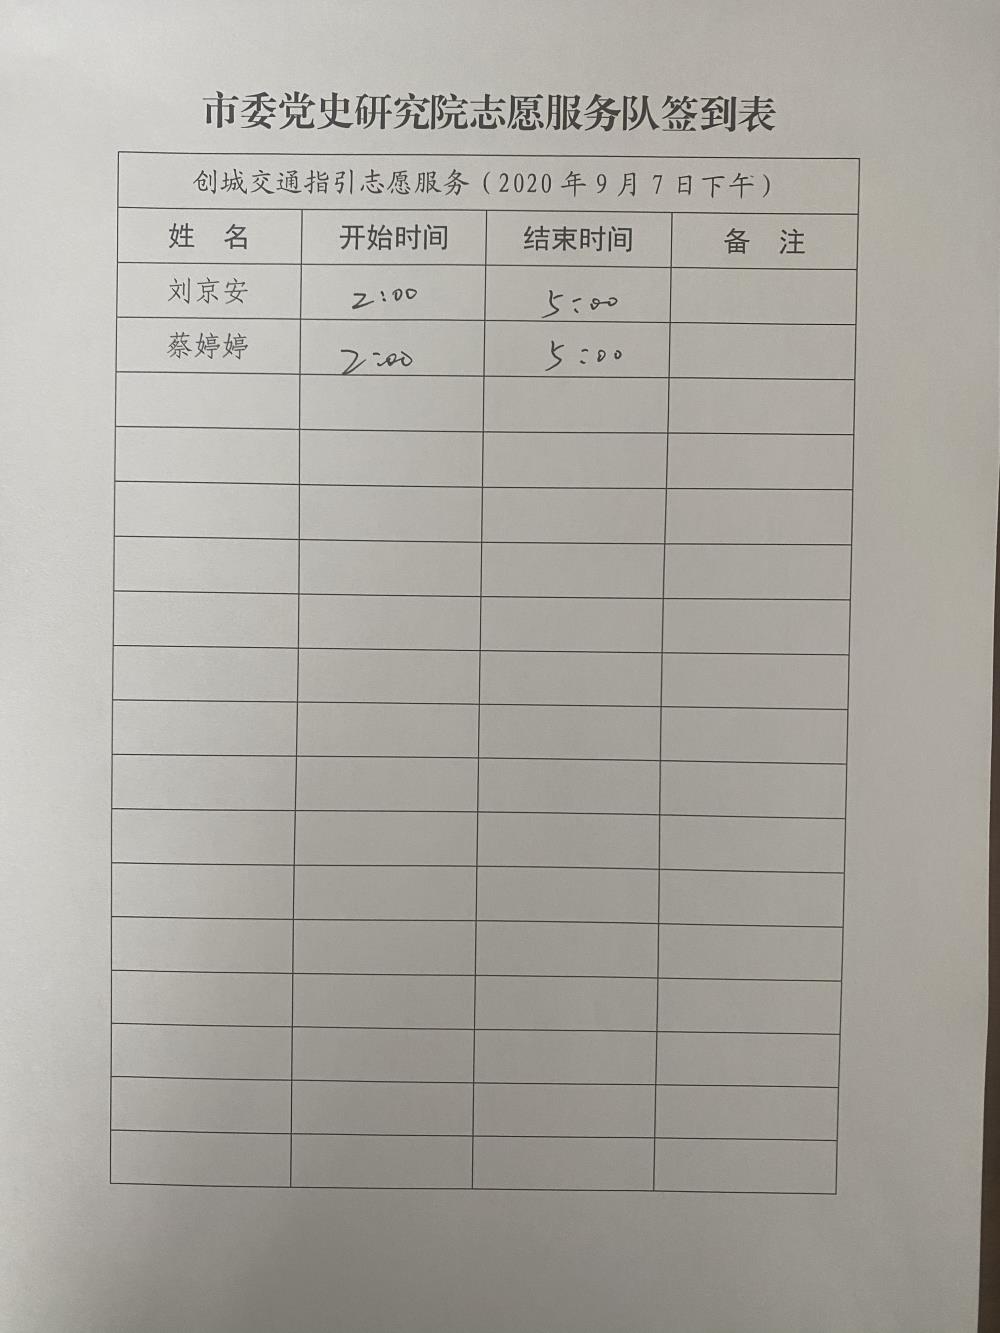 市委党史研究院志愿服务队签到表
创城交通指引志愿服务（2020年9月7日下午）
姓 名 开始时间 结束时间 备 注
刘京安 2:00 5:00
蔡婷婷 2:00 5:00